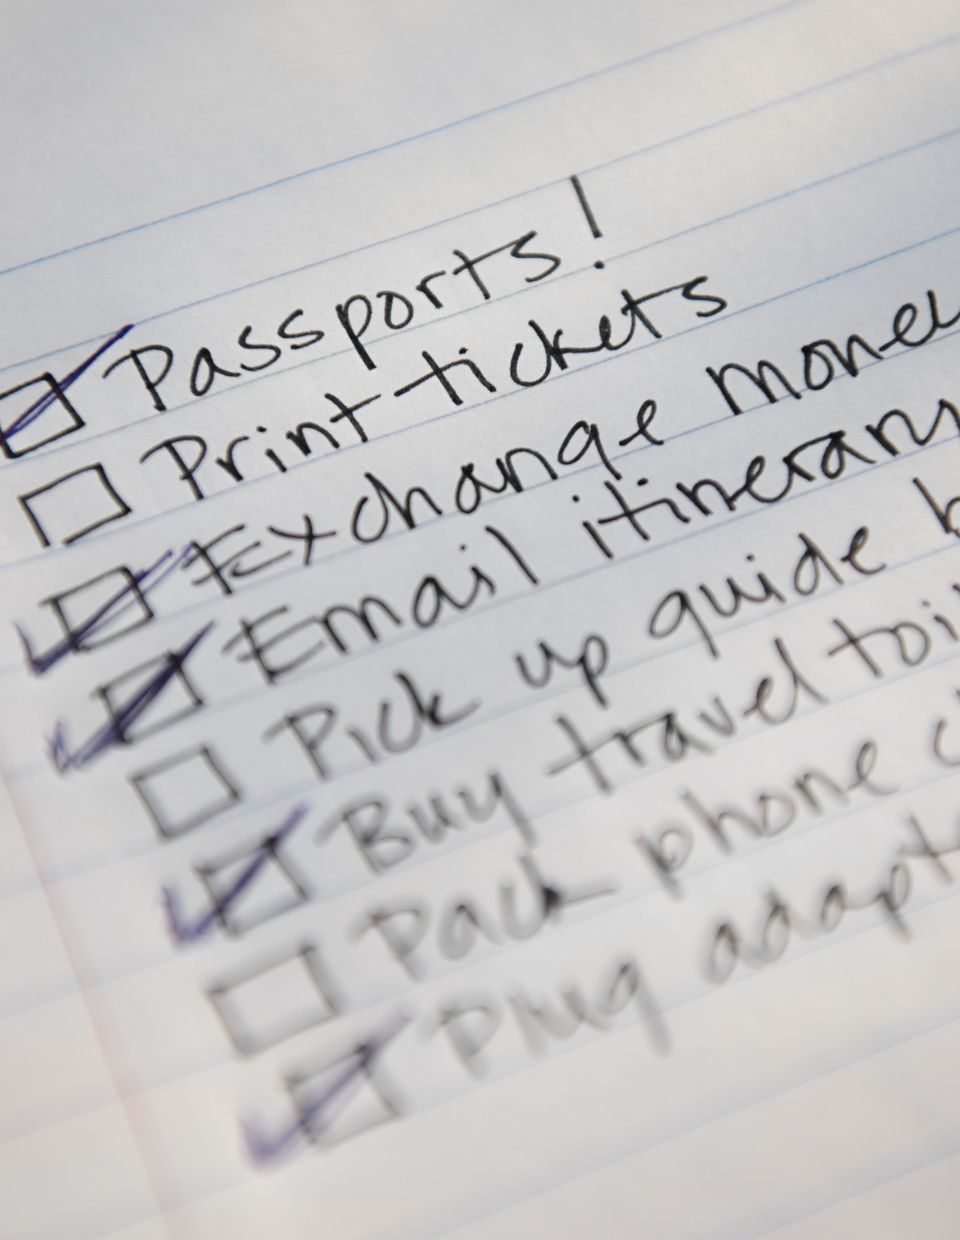 Passports!
Print tickets
Exchange money
Email itinerary
Pick up guide
Buy travel
Pack phone
Plug